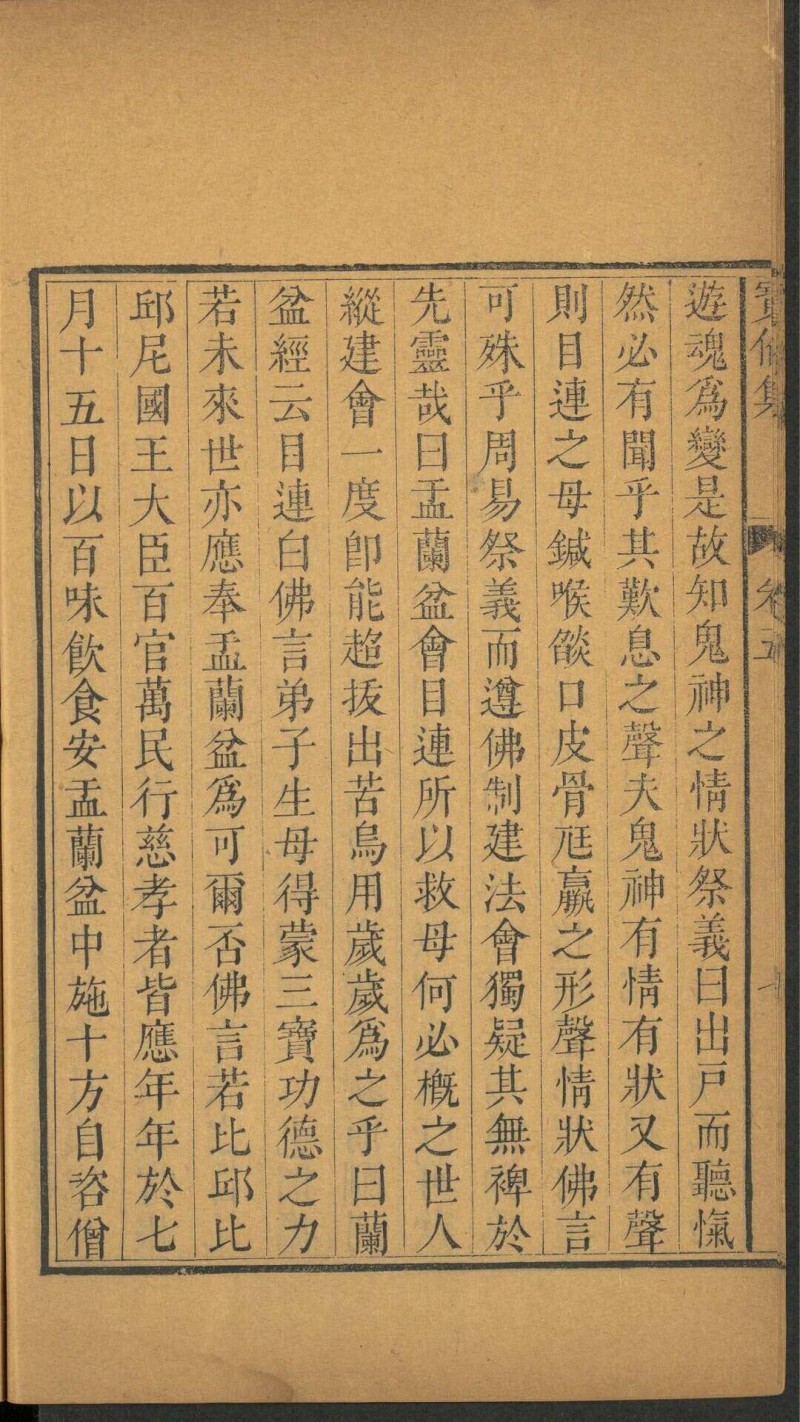 遊魂爲變是故知鬼神之情狀祭義曰出戸而聽愾
然必有聞乎其歎息之聲夫鬼神有情有狀又有聲
則目連之母鍼喉燄口皮骨尫羸之形聲情狀佛言
可殊乎周易祭義而遵佛制建法會獨疑其無裨於
先靈哉曰盂蘭盆會目連所以救母何必概之世人
縱建會一度卽能超拔出苦烏用歲歲爲之乎曰蘭
盆經云目連白佛言弟子生母得蒙三寶功德之力
若未來世亦應奉盂蘭盆爲可爾否佛言若比邱比
邱尼國王大臣百官萬民行慈孝者皆應年年於七
月十五日以百味飮食安盂蘭盆中施十方自咨僧